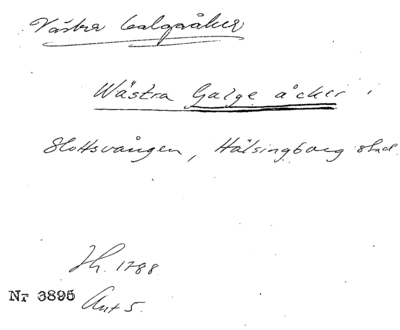 Västra Galgeåker
Wästra Galge åcker i
Slottsvången, Hälsingborg stad.
Jh. 1788
Nr 3895
Ant 5.